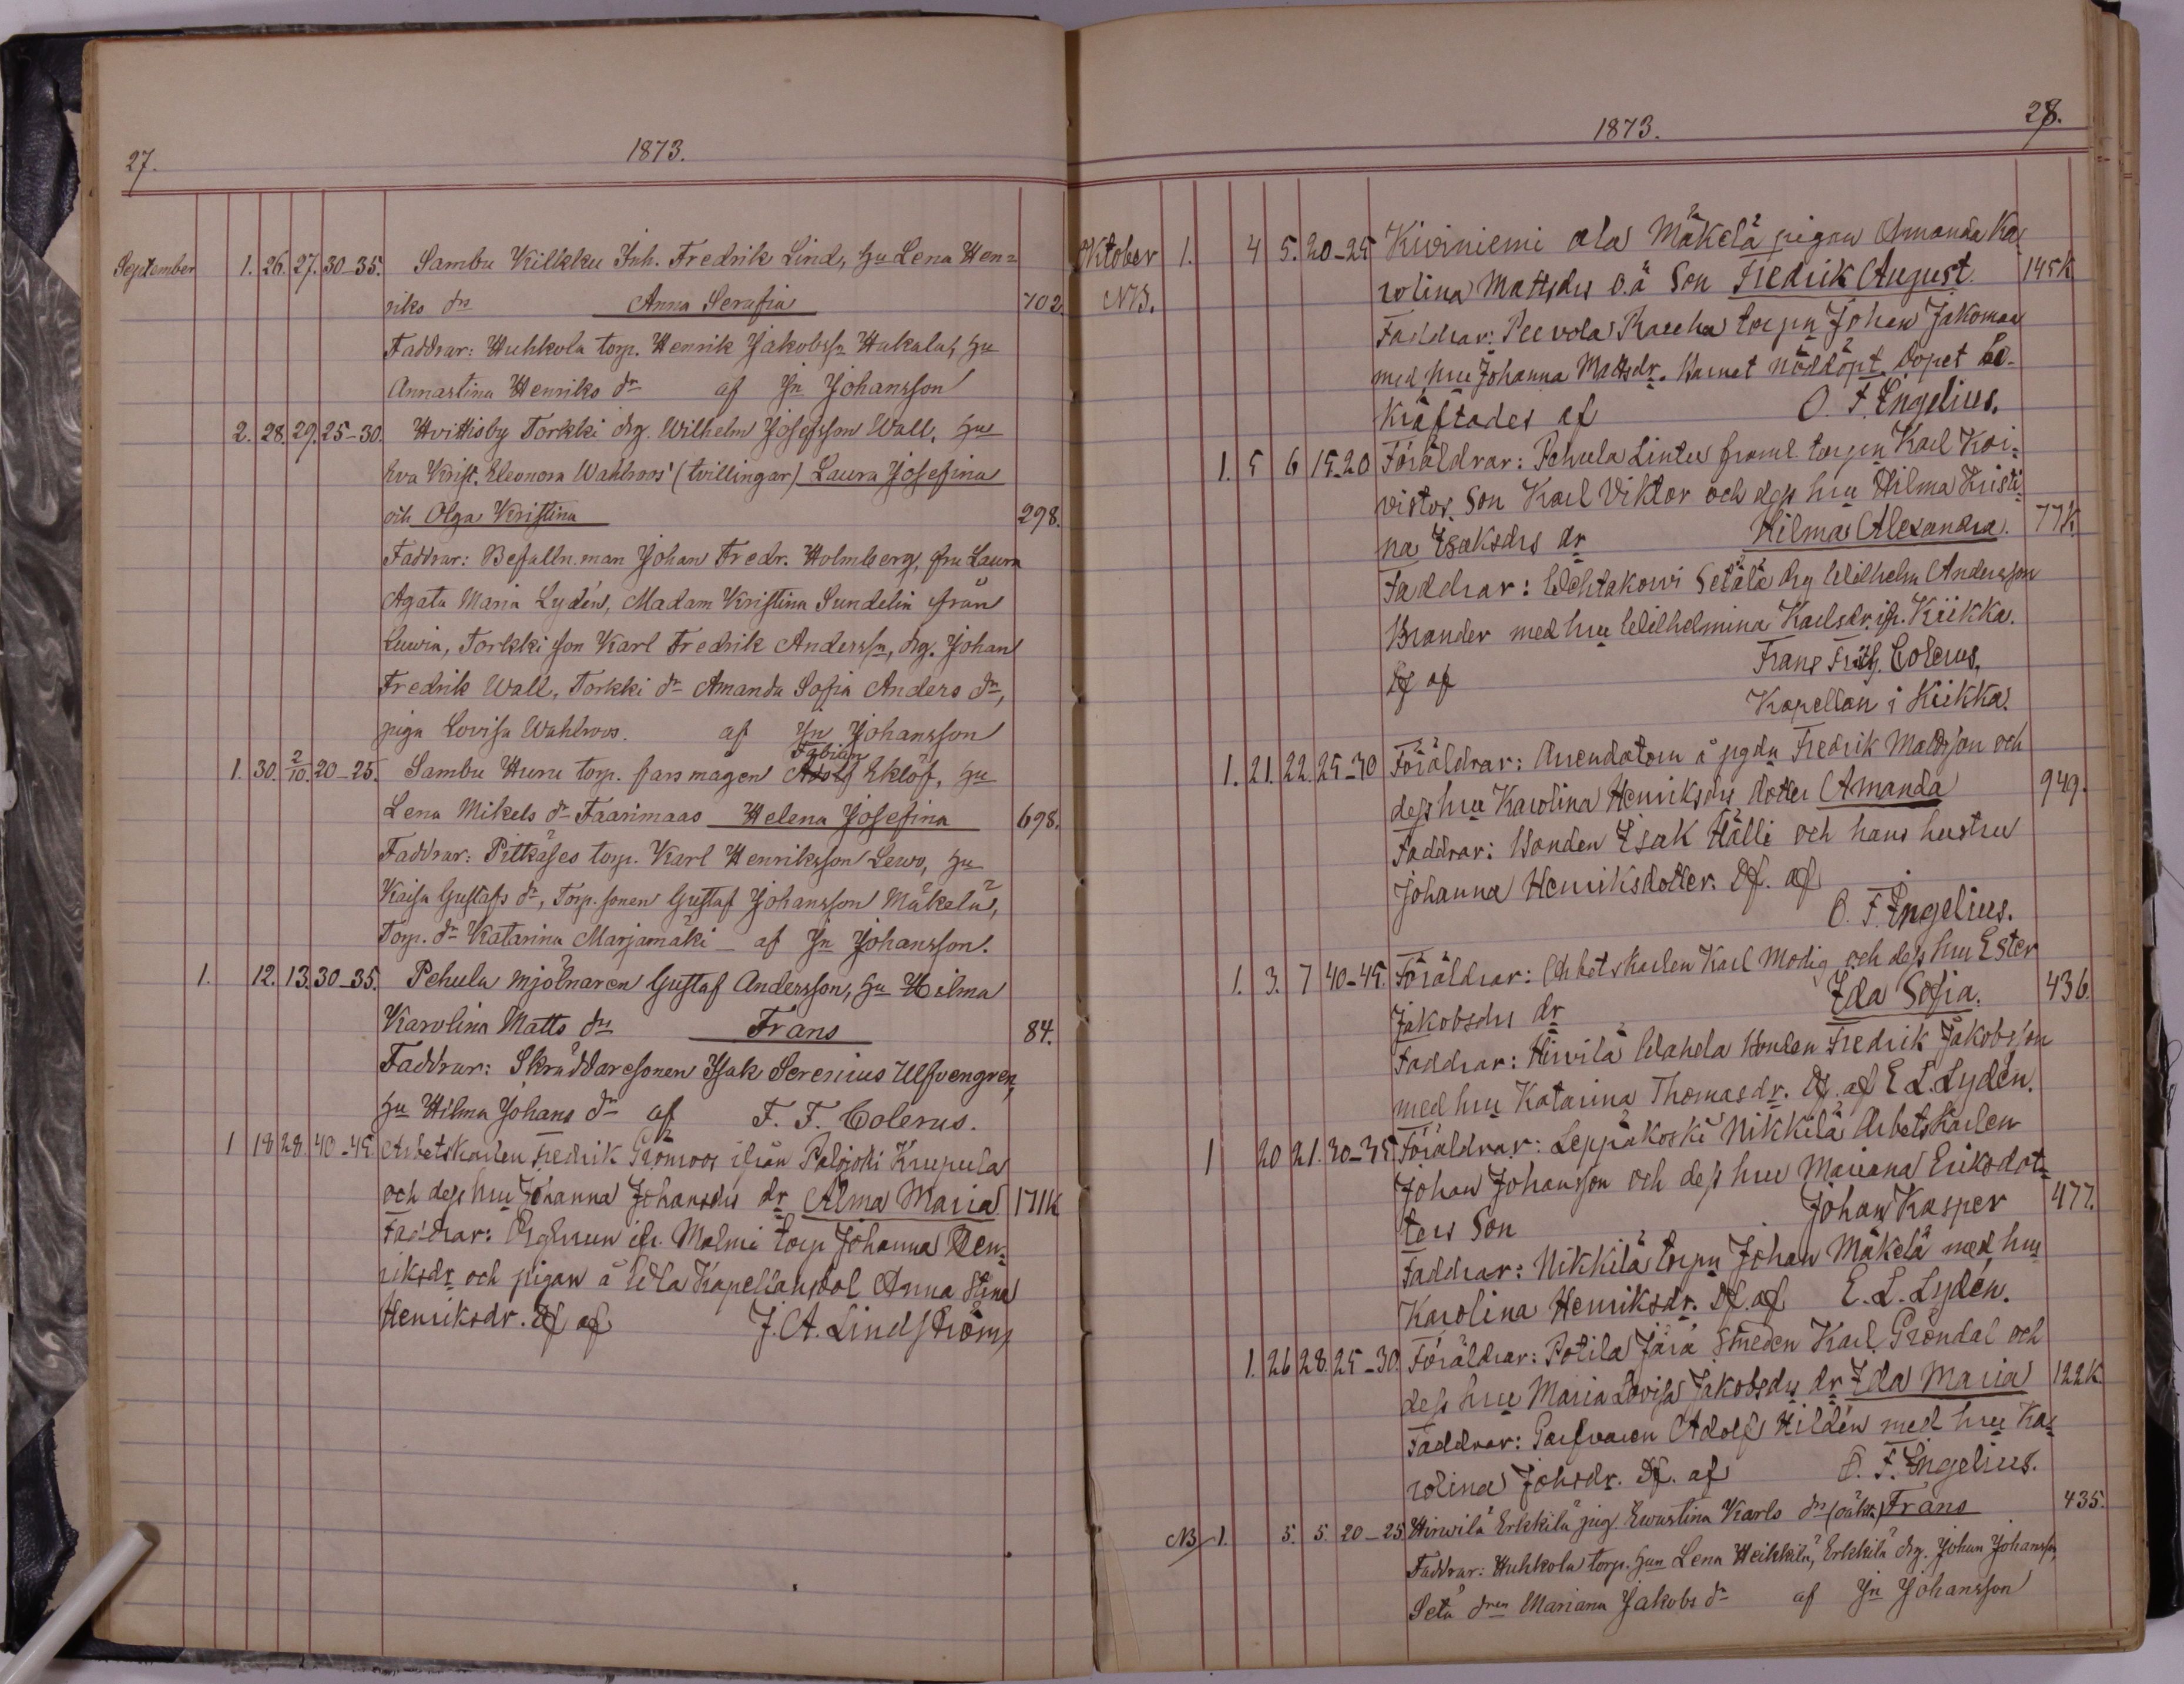 27.
1873.
September 1. 26. 27. 30-35. Sambu Kilkku Inh. Fredrik Lind, hu Lena Hen=
riks dr Anna Serafia 702.
Faddrar: Huhkola torp. Henrik Jakobssn Hakala, hu
Annastina Henriks dr af Jn Johansson
2. 28. 29. 25-30. Hvittisby Torkki drg. Wilhelm Josefsson Wall, hu
Eva Krist. Eleonora Wahlroos (tvillingar) Laura Josefina
och Olga Kristina 298.
Faddrar: Befalln.man Johan Fredr. Holmberg, fru Laura
Agata Maria Lydén, Madam Kristina Sundelin från
Torkki son Karl Fredrik Anderssn, drg. Johan
Fredrik Wall, Torkki dr Amanda Sofia Anders dr,
piga Lovisa Wahlroos. af Jn Johansson
Fabian
1. 30. 2/10. 20-25. Sambu Huru torp. fars mågen Adolf Eklöf, hu
Lena Mikels dr Faarimaas Helena Josefina 698.
Faddrar: Pitkäjes torp. Karl Henriksson Lewo, hu
Kajsa Gustafs dr, Torp. sonen Gustaf Johansson Mäkelä,
Torp. dr Katarina Marjamäki - af Jn Johansson.
1. 12. 13. 30-35. Pehula mjölnaren Gustaf Andersson, hu Hilma
Karolina Matts drs Frans 84.
Faddrar: Skräddaresonen Isak Serenius Ulfvengren,
hu Hilma Johans dr af F. F. Colerus.
1 18 28. 40-45. Arbetskarlen Fredrik Grönroos ifrån Palojoki Krupula
och dess hru Johanna Johansdrs dr Alma Maria 171K
Faddrar: Drghrun ifr. Malmi torp Johanna Hen=
riksdr och pigan å Wla Kapellansbol Anna Stina
Henriksdr. Df af J. A. Lindström
1873.
28.
Oktober 1. 4 5. 20-25 Kiviniemi ala Mäkelä pigan Amanda Ka=
NB. rolina Mattsdrs o.ä Son Fredrik August. 145K
Faddrar: Peevola Raucha torpn Johan Jakoman
med hru Johanna Mattsdr. Barnet nöddöpt. Dopet be-
kräftades af O. F. Engelius.
1. 5 6 15.20 Föräldrar: Pehula Lintu framl. torpn Karl Koi=
vistos Son Karl Viktor och dess hru Hilma Kristi
na Isaksdrs dr Hilma Alexandra. 77K
Faddrar: Wehtakowi Setälä drg Wilhelm Andersson
Brander med hru Wilhelmina Karlsdr. ifr. Kiikka.
Df af Frans Frith. Colerus.
Kapellan i Kiikka.
1. 21. 22. 25-30 Föräldrar: Arrendatorn å pgdn Fredrik Mattsson och
dess hru Karolina Henriksdrs dotter Amanda 949.
Faddrar: Bonden Isak Hälli och hans hustru
Johanna Henriksdotter. Df. af
O. F. Engelius.
1. 3. 7 40-45. Föräldrar: Arbetskarlen Karl Modig och dess hru Ester
Jakobsdrs dr Ida Sofia. 436.
Faddrar: Hirvilä Wahela Bonden Fredrik Jakobsson
med hru Katarina Thomasdr. Df. af E L. Lydén.
1 20 21. 30-35 Föräldrar: Leppäkoski Nikkilä Arbetskarlen
Johan Johansson och dess hru Mariana Eriksdot=
ters Son Johan Kasper 477.
Faddrar: Nikkilä torpn Johan Mäkelä med hru
Karolina Henriksdr. Df. af E. L. Lydén.
1. 26 28. 25-30. Föräldrar: Potila Järä Smeden Karl Gröndal och
dess hru Maria Lovisa Jakobsdrs dr Ida Maria 122K
Faddrar: Garfvaren Adolf Hildén med hru Ka=
rolina Johsdr. Df. af O. F. Engelius.
NB 1. 5. 5. 20-25. Hirwilä Erkkilä pig. Ewastina Karls drs (oäkta) Frans 435.
Faddrar: Huhkola torp. hun Lena Heikkilä, Erkkilä drg. Johan Johanssn,
Setä dren Mariana Jakobs dr af Jn Johansson